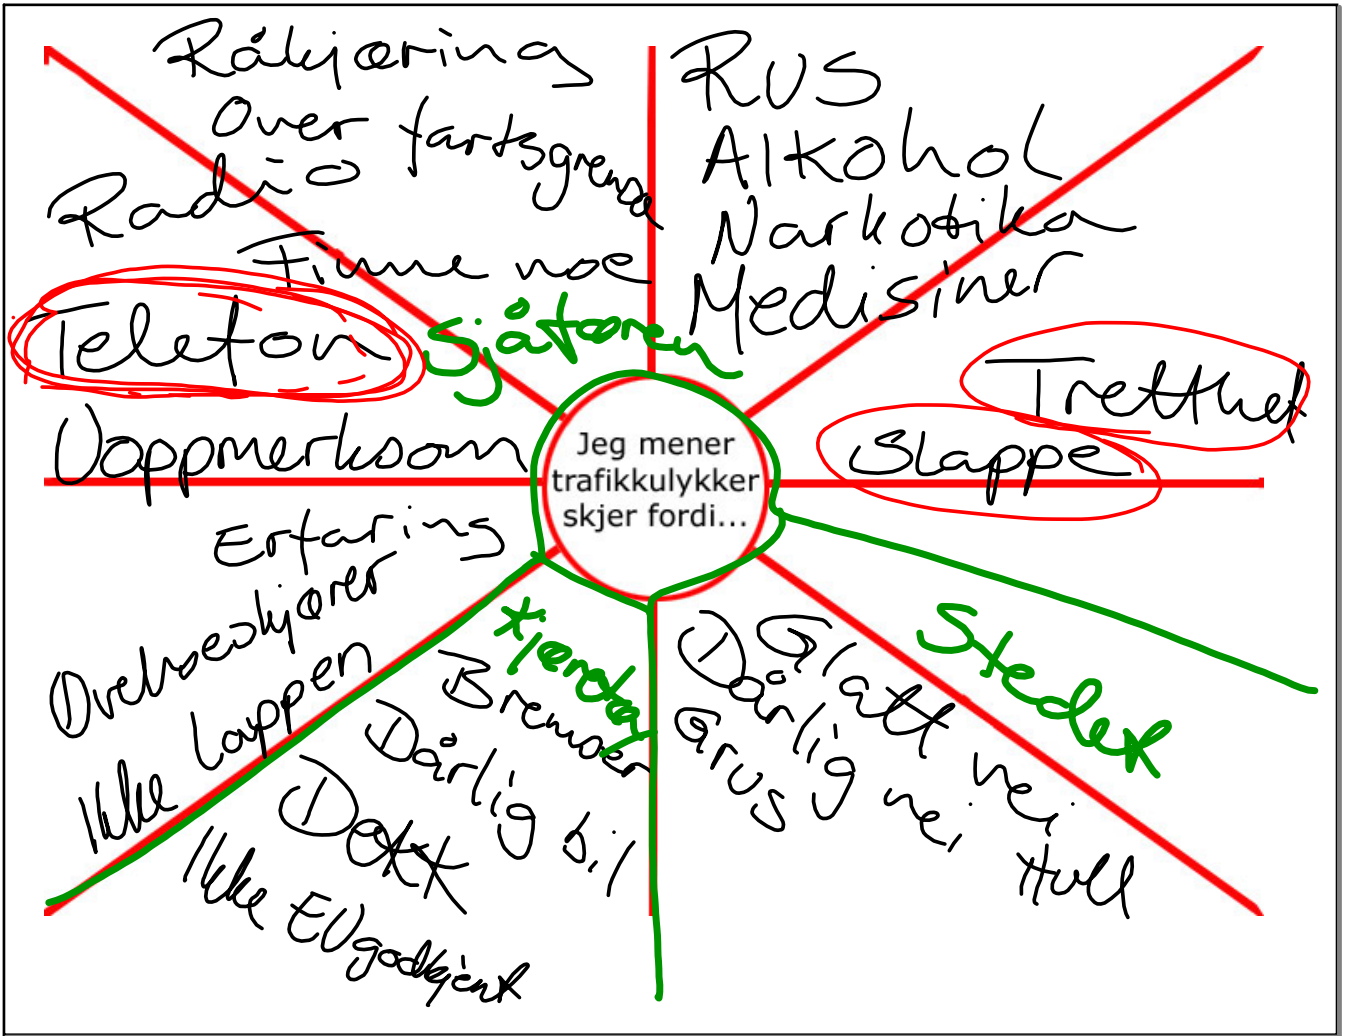 Råkjøring
Over fartsgrensa
Radio
Finne noe
Telefon
Uoppmerksom
RUS
Alkohol
Narkotika
Medisiner
Sjåføren
Tretthet
Slappe
Jeg mener
trafikkulykker
skjer fordi...
Erfaring
Øvelseskjører
Ikke lappen
Kjøretøy
Bremser
Dårlig bil
Dekk
Ikke EU godkjent
Glatt vei
Dårlig vei
Grus
Hull
Stedet